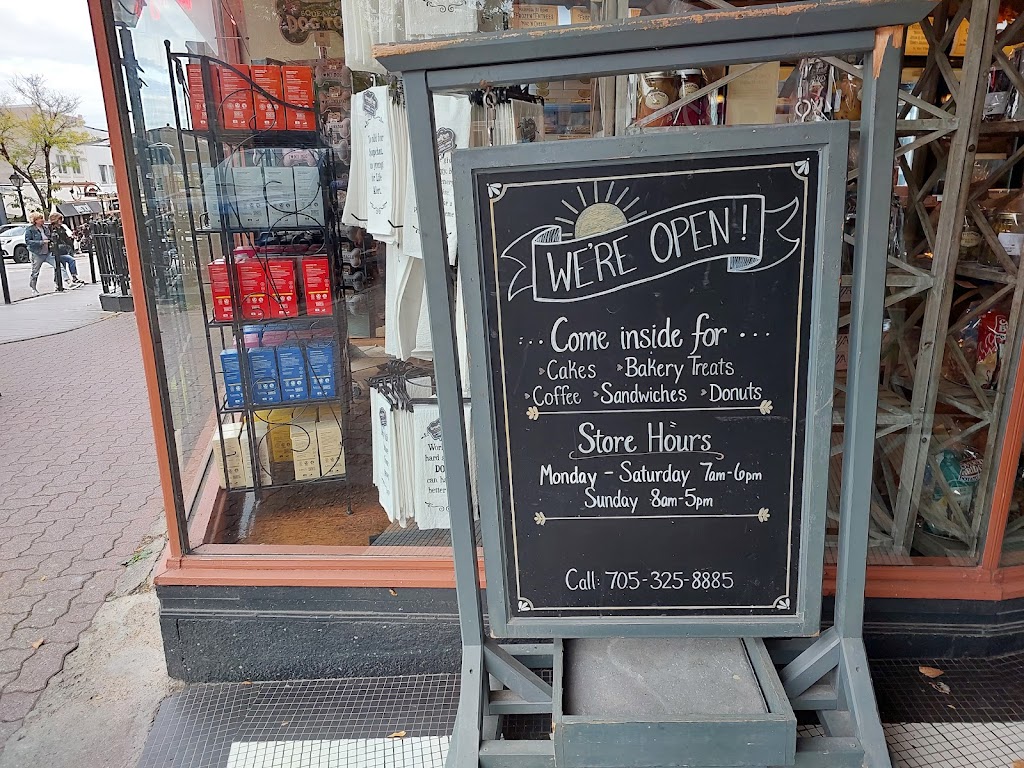 WE'RE OPEN!
... Come inside for ...
» Cakes » Bakery Treats
» Coffee » Sandwiches » Donuts
Store Hours
Monday - Saturday 7am-6pm
Sunday 8am-5pm
Call: 705-325-8885